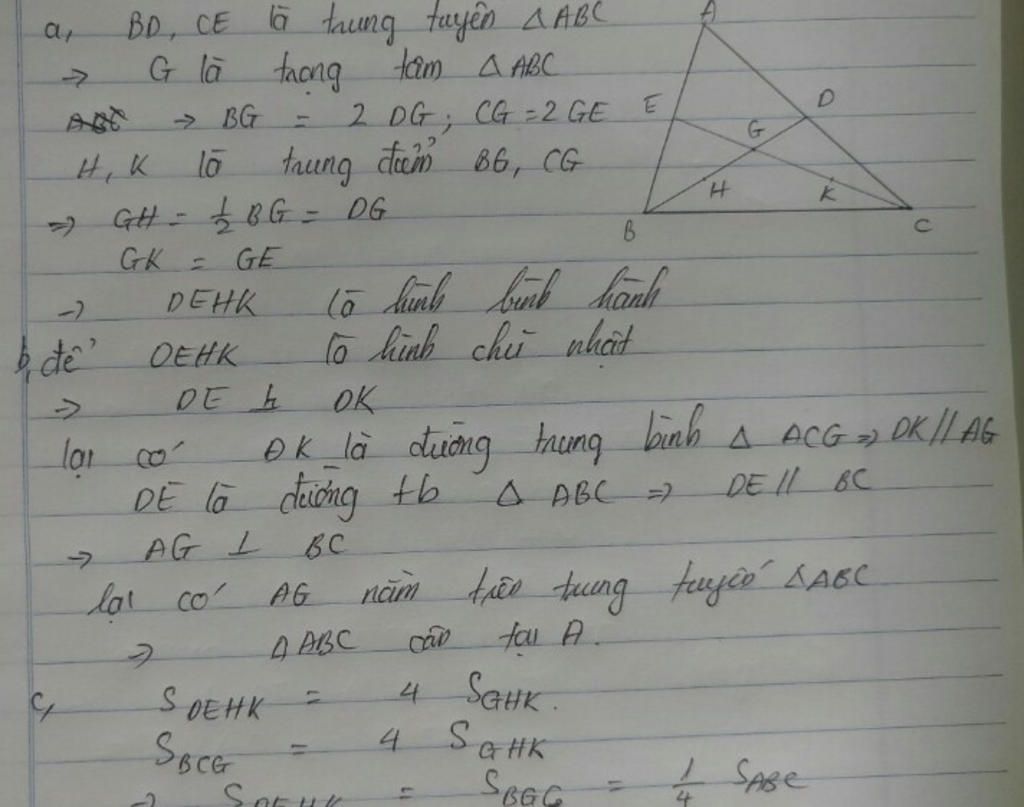 a, BD, CE là trung tuyến △ABC
⇒ G là trọng tâm △ABC
→ BG = 2 DG; CG = 2 GE
H, K là trung điểm BG, CG
⇒ GH = 1/2 BG = DG
GK = GE
→ DEHK là hình bình hành
b, để DEHK là hình chữ nhật
⇒ DE ⊥ DK
lại có DK là đường trung bình △ ACG ⇒ DK // AG
DE là đường tb △ ABC ⇒ DE // BC
→ AG ⊥ BC
lại có AG nằm trên trung tuyến △ABC
⇒ △ABC cân tại A.
c, S DEHK = 4 S GHK.
S BCG = 4 S GHK
→ S DEHK = S BGC = 1/4 S ABC
A
E D
G
H K
B C